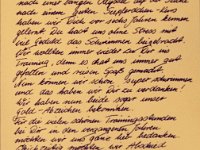 nach und langen Abfolge auf der Suche
nach einem guten Tierpfleger
haben wir Dich vor sechs Jahren kennen
gelernt. Du hast uns ohne Stress mit
viel Geduld das Schwimmen beigebracht.
Wir wollten immer wieder zu Dir ins
Training, denn es hat uns immer gut
gefallen und riesen Spaß gemacht.
Nun können wir schon super schwimmen
und das haben wir Dir zu verdanken!
Wir haben nun beide sogar unser
Gold-Abzeichen bekommen.
Für die vielen schönen Trainingsstunden
bei Dir in den vergangenen Jahren
möchten wir uns ganz bedanken
möchten wir Abschied